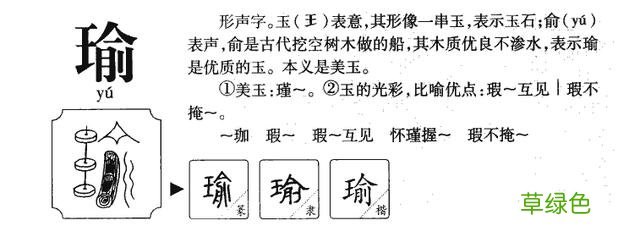 瑜
yú
形声字。玉(王)表意,其形像一串玉,表示玉石;俞(yú)
表声,俞是古代挖空树木做的船,其木质优良不渗水,表示瑜
是优质的玉。本义是美玉。
①美玉:瑾～。②玉的光彩,比喻优点:瑕～互见|瑕不
掩～。
～珈 瑕～ 瑕～互见 怀瑾握～ 瑕不掩～
瑜 篆 瑜 隶 瑜 楷
草绿色